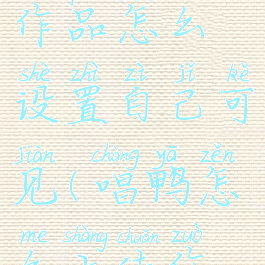 作品怎么
shè zhì zì jǐ kě
设置自己可
jiàn chàng yā zěn
见(唱鸭怎
me shàng chuán zuò